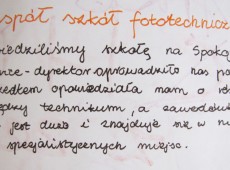 spół szkół fototechnicz
iedziliśmy szkołę na Spokoj
dyrektor oprowadziło nas po
opowiedziała nam o
technikum, a
jest duża i znajduje się w
specjalistycznych miejsc.